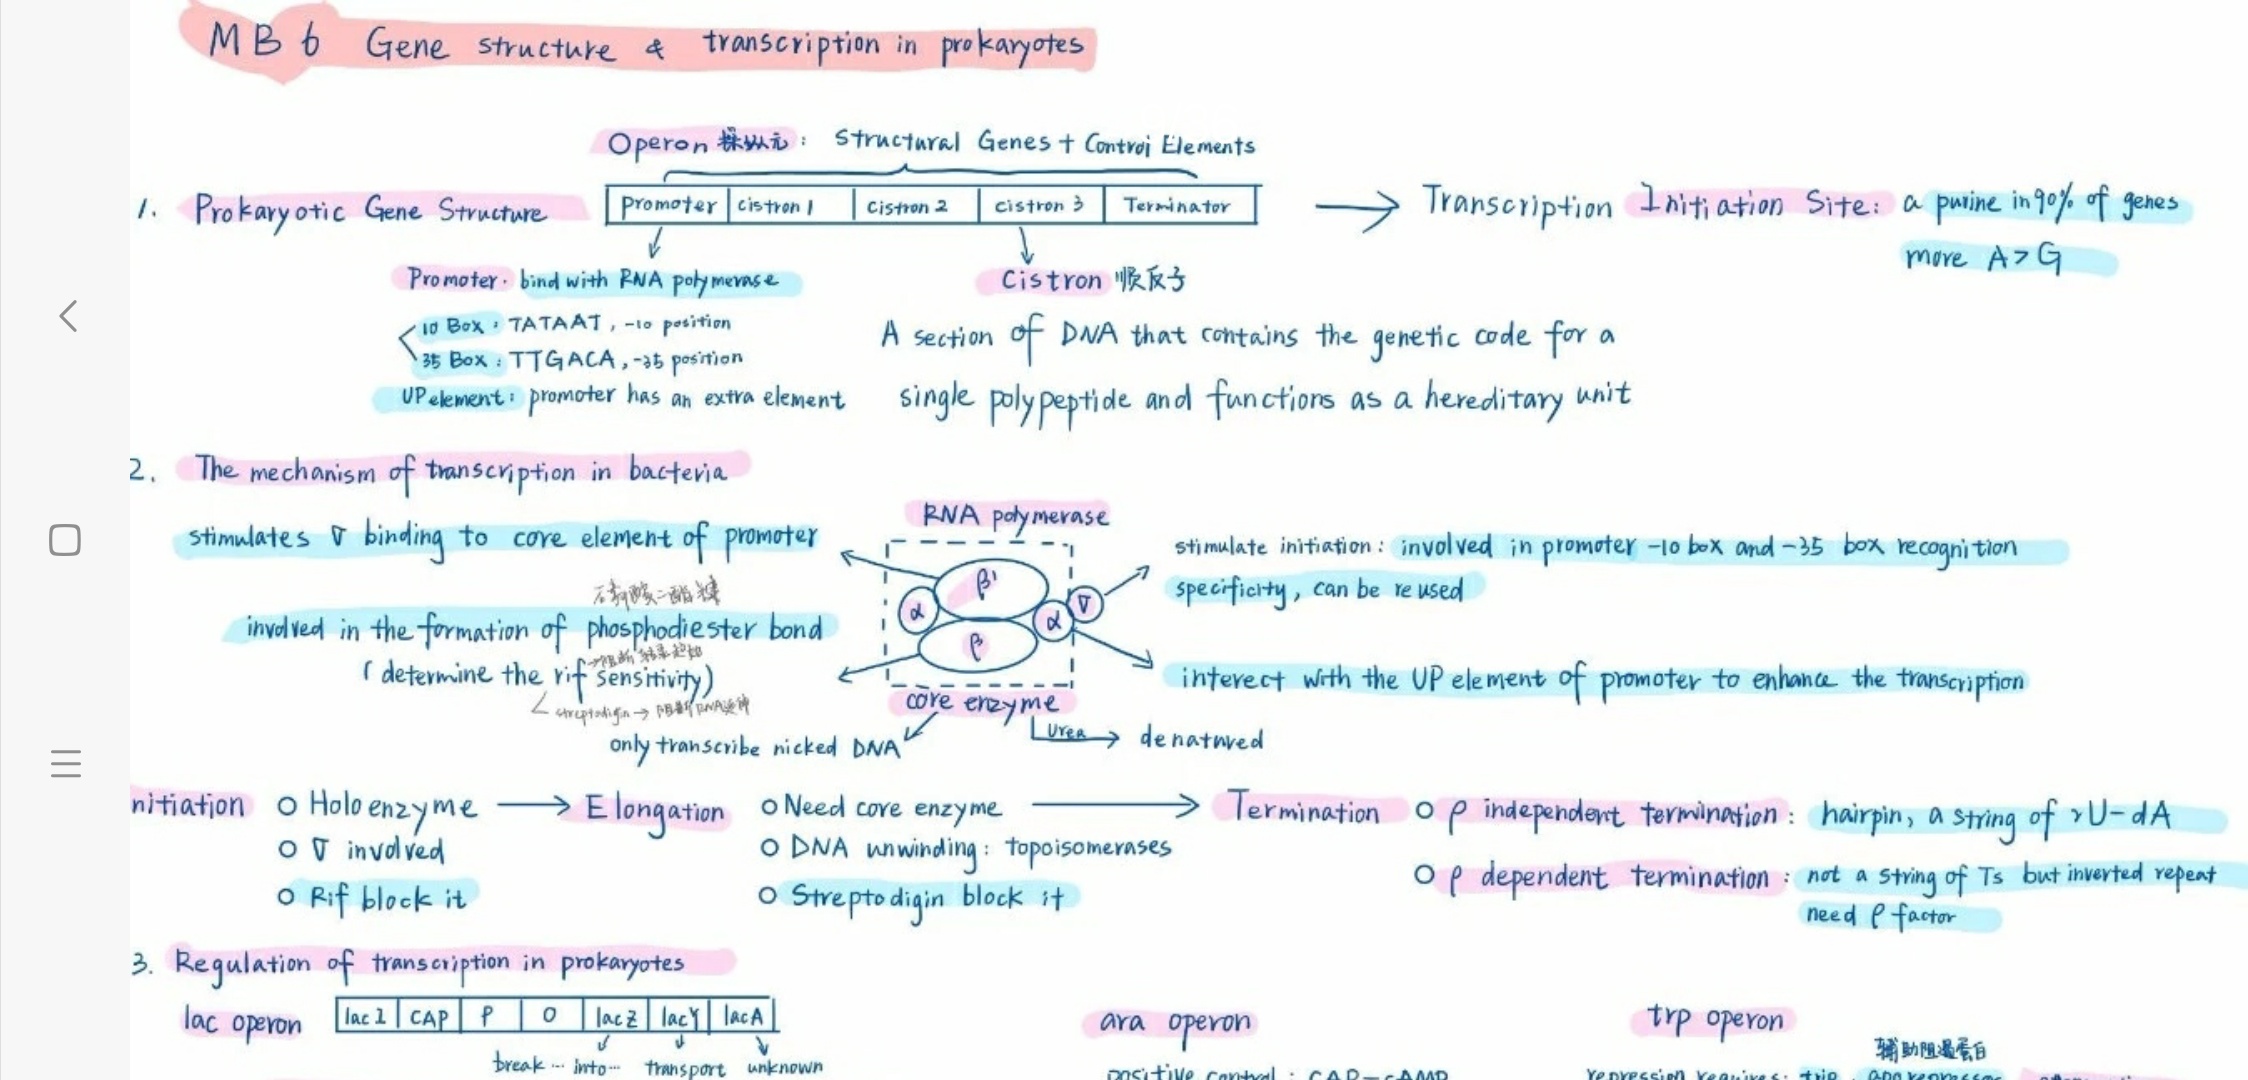 MB 6 Gene structure & transcription in prokaryotes
Operon 操纵元: Structural Genes + Control Elements
1. Prokaryotic Gene Structure
Promoter | cistron 1 | Cistron 2 | cistron 3 | Terminator
→ Transcription Initiation Site: a purine in 90% of genes
more A > G
Promoter. bind with RNA polymerase
10 Box: TATAAT, -10 position
35 Box: TTGACA, -35 position
UP element: promoter has an extra element
Cistron 顺反子
A section of DNA that contains the genetic code for a
single polypeptide and functions as a hereditary unit
2. The mechanism of transcription in bacteria
RNA polymerase
stimulates σ binding to core element of promoter
磷酸二酯键
involved in the formation of phosphodiester bond
(determine the rif sensitivity)
→阻断转录起始
streptodigin → 阻断RNA延伸
β'
α
α
σ
β
core enzyme
only transcribe nicked DNA
Urea → denatured
stimulate initiation: involved in promoter -10 box and -35 box recognition
specificity, can be reused
interect with the UP element of promoter to enhance the transcription
nitiation ○ Holo enzyme → Elongation ○ Need core enzyme → Termination ○ ρ independent termination: hairpin, a string of rU-dA
○ σ involved ○ DNA unwinding: topoisomerases
○ ρ dependent termination: not a string of Ts but inverted repeat
○ Rif block it ○ Streptodigin block it
need ρ factor
3. Regulation of transcription in prokaryotes
lac operon
lac I | CAP | P | O | lacZ | lacY | lacA
break ... into... transport unknown
ara operon
positive control: CAP-cAMP
trp operon
辅助阻遏蛋白
repression requires: trip